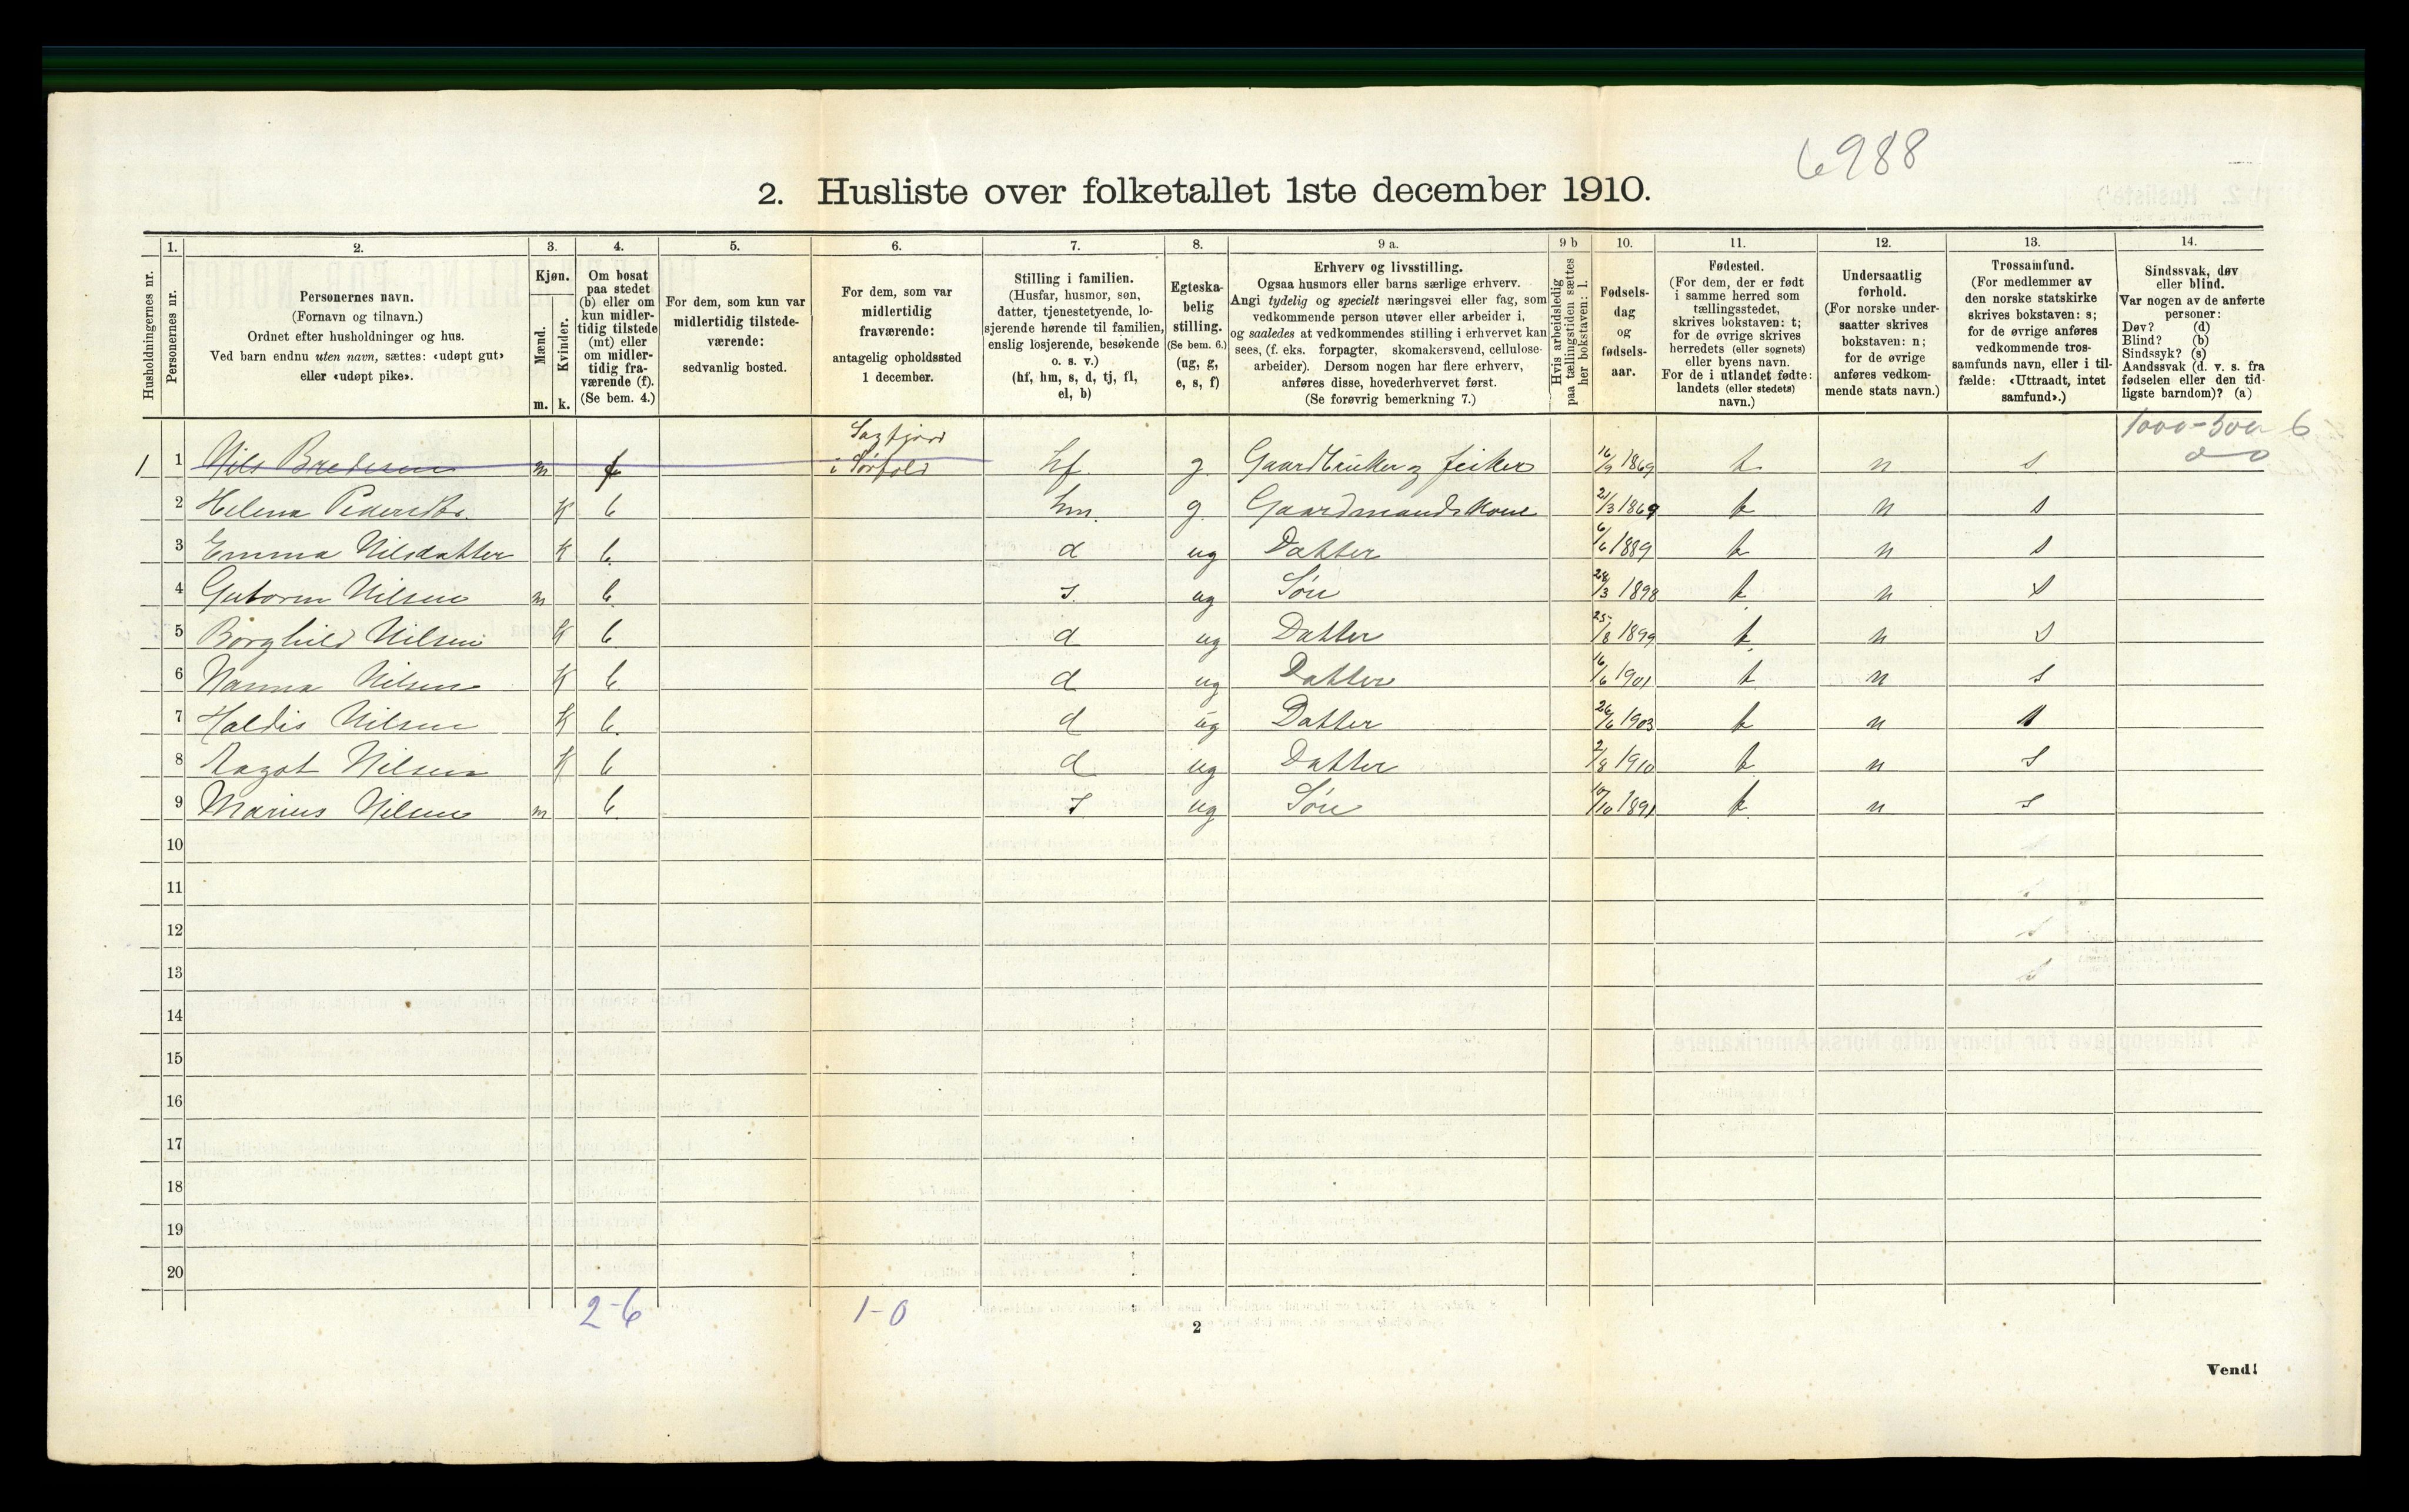 6988
2. Husliste over folketallet 1ste december 1910.
Husholdningernes nr.
1.
Personernes nr.
2.
Personernes navn.
(Fornavn og tilnavn.)
Ordnet efter husholdninger og hus.
Ved barn endnu uten navn, sættes: «udøpt gut»
eller «udøpt pike».
3.
Kjøn.
Mænd.
Kvinder.
m. k.
4.
Om bosat
paa stedet
(b) eller om
kun midler-
tidig tilstede
(mt) eller
om midler-
tidig fra-
værende (f).
(Se bem. 4.)
5.
For dem, som kun var
midlertidig tilstede-
værende:
sedvanlig bosted.
6.
For dem, som var
midlertidig
fraværende:
antagelig opholdssted
1 december.
7.
Stilling i familien.
(Husfar, husmor, søn,
datter, tjenestetyende, lo-
sjerende hørende til familien,
enslig losjerende, besøkende
o. s. v.)
(hf, hm, s, d, tj, fl,
el, b)
8.
Egteska-
belig
stilling.
(Se bem. 6.)
(ug, g,
e, s, f)
9 a.
Erhverv og livsstilling.
Ogsaa husmors eller barns særlige erhverv.
Angi tydelig og specielt næringsvei eller fag, som
vedkommende person utøver eller arbeider i,
og saaledes at vedkommendes stilling i erhvervet kan
sees, (f. eks. forpagter, skomakersvend, cellulose-
arbeider). Dersom nogen har flere erhverv,
anføres disse, hovederhvervet først.
(Se forøvrig bemerkning 7.)
9 b
Hvis arbeidsledig
paa tællingstiden sættes
her bokstaven: l.
10.
Fødsels-
dag
og
fødsels-
aar.
11.
Fødested.
(For dem, der er født
i samme herred som
tællingsstedet,
skrives bokstaven: t;
for de øvrige skrives
herredets (eller sognets)
eller byens navn.
For de i utlandet fødte:
landets (eller stedets)
navn.)
12.
Undersaatlig
forhold.
(For norske under-
saatter skrives
bokstaven: n;
for de øvrige
anføres vedkom-
mende stats navn.)
13.
Trossamfund.
(For medlemmer av
den norske statskirke
skrives bokstaven: s;
for de øvrige anføres
vedkommende tros-
samfunds navn, eller i til-
fælde: «Uttraadt, intet
samfund».)
14.
Sindssvak, døv
eller blind.
Var nogen av de anførte
personer:
Døv? (d)
Blind? (b)
Sindssyk? (s)
Aandssvak (d. v. s. fra
fødselen eller den tid-
ligste barndom)? (a)
1000-500 6
0 0
1 1 Nils Bredesen m f Sagfjord i Sørfold hf g. Gaardbruker og fisker 16/9 1869 t n s
2 Helena Pedersdtr. K b hm. g. Gaardmandskone 21/3 1869 t n s
3 Emma Nilsdatter K b. d ug Datter 6/6 1889 t n s
4 Gutorm Nilsen m b. s. ug Søn 28/3 1898 t n s
5 Borghild Nilsen K b d ug Datter 25/8 1899 t n s
6 Nanna Nilsen K b. d ug Datter 16/6 1901 t n s
7 Haldis Nilsen K b. d ug Datter 26/6 1903 t n s
8 Aagot Nilsen K b d ug Datter 2/8 1910 t n s
9 Marius Nilsen m b. s. ug Søn 10/10 1891 t n s
10
11
12
13
14
15
16
17
18
19
20
2-6 1-0
2
Vend!